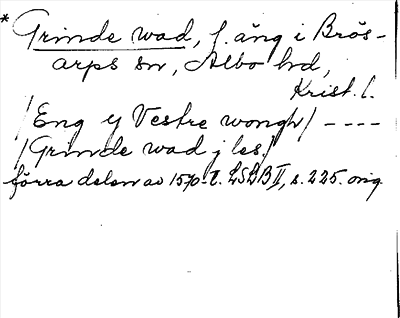 * Grinde wad, f. äng i Brös-
arps sn, Albo hd,
Krist. l.
/Eng y Vestre wongh/ ----
/Grinde wad j les./
förra delen av 1570-t. LSLB II, s. 225. orig.